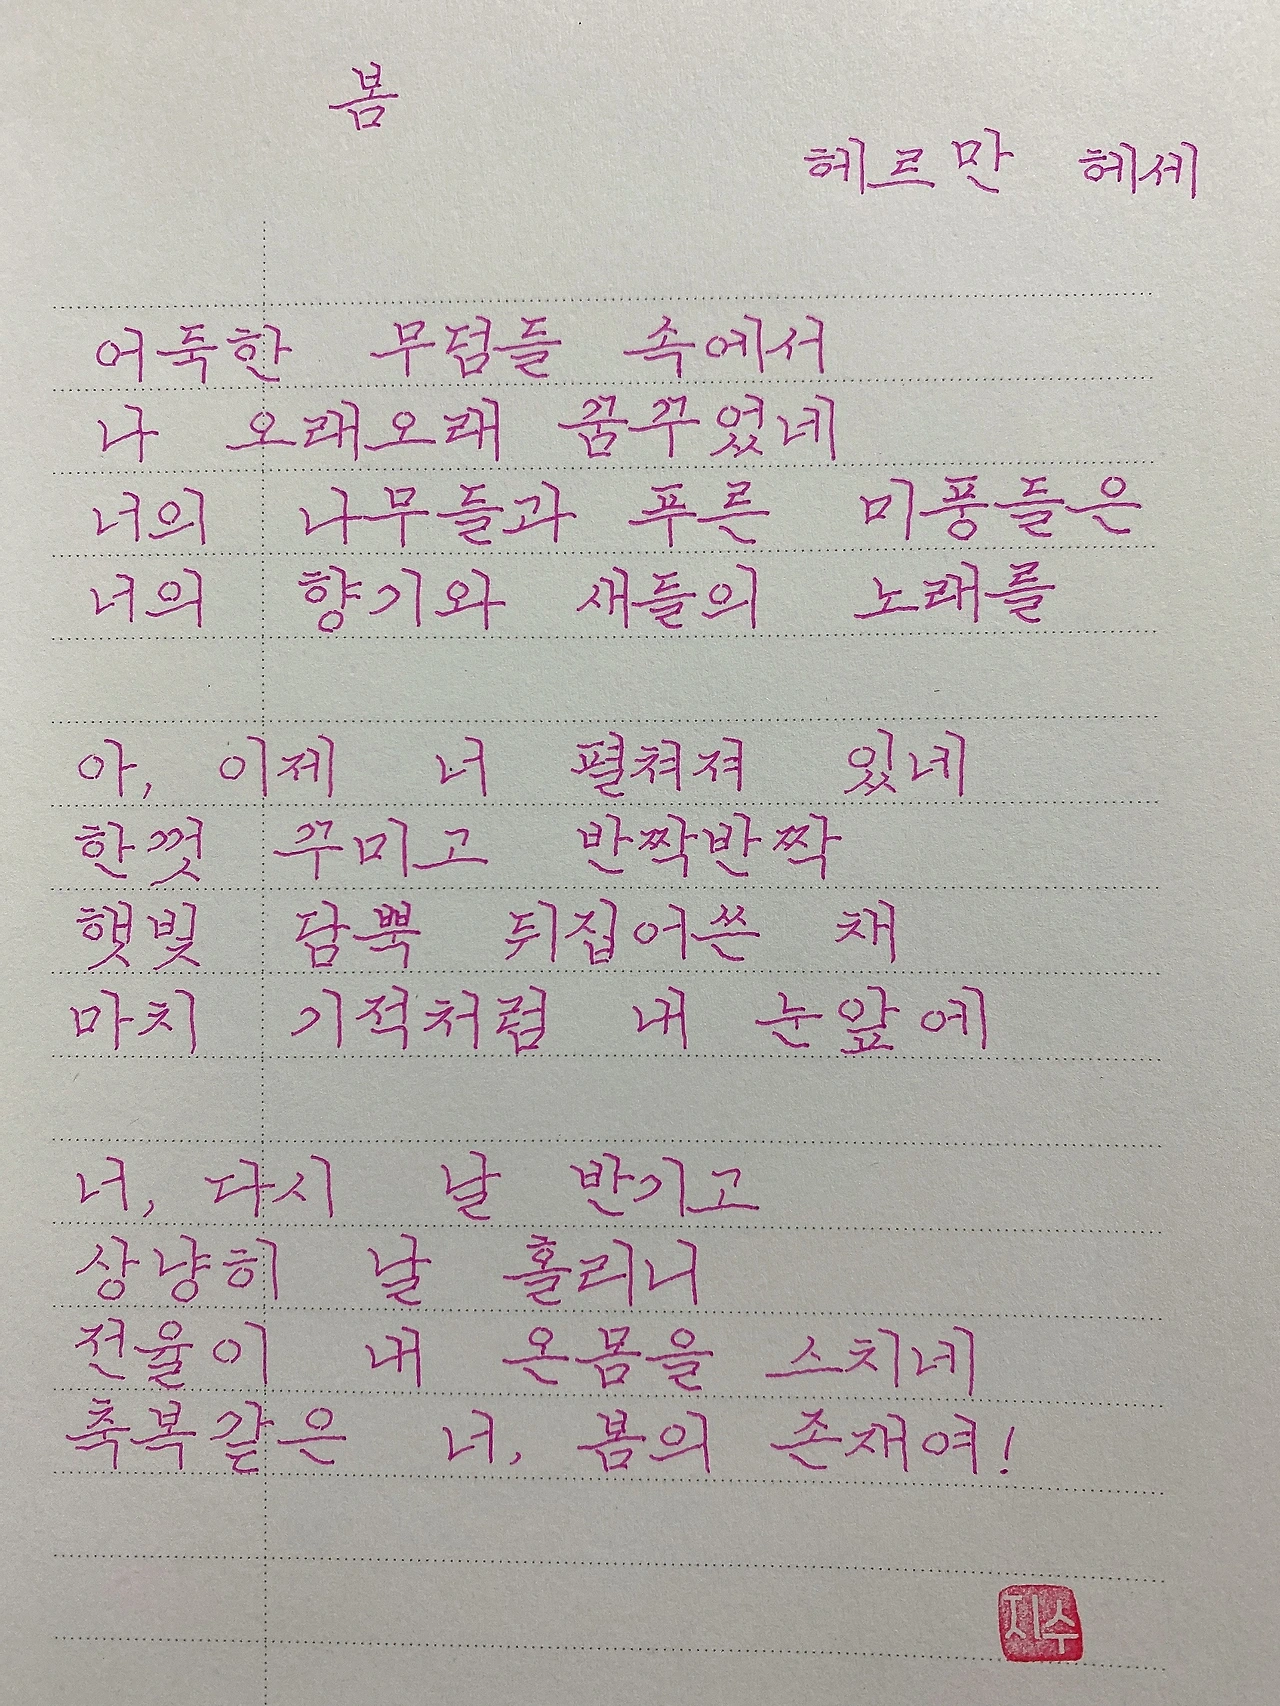 봄
헤르만 헤세
어둑한 무덤들 속에서
나 오래오래 꿈꾸었네
너의 나무들과 푸른 미풍들은
너의 향기와 새들의 노래를
아, 이제 너 펼쳐져 있네
한껏 꾸미고 반짝반짝
햇빛 담뿍 뒤집어쓴 채
마치 기적처럼 내 눈앞에
너, 다시 날 반기고
상냥히 날 홀리니
전율이 내 온몸을 스치네
축복같은 너, 봄의 존재여!
지수